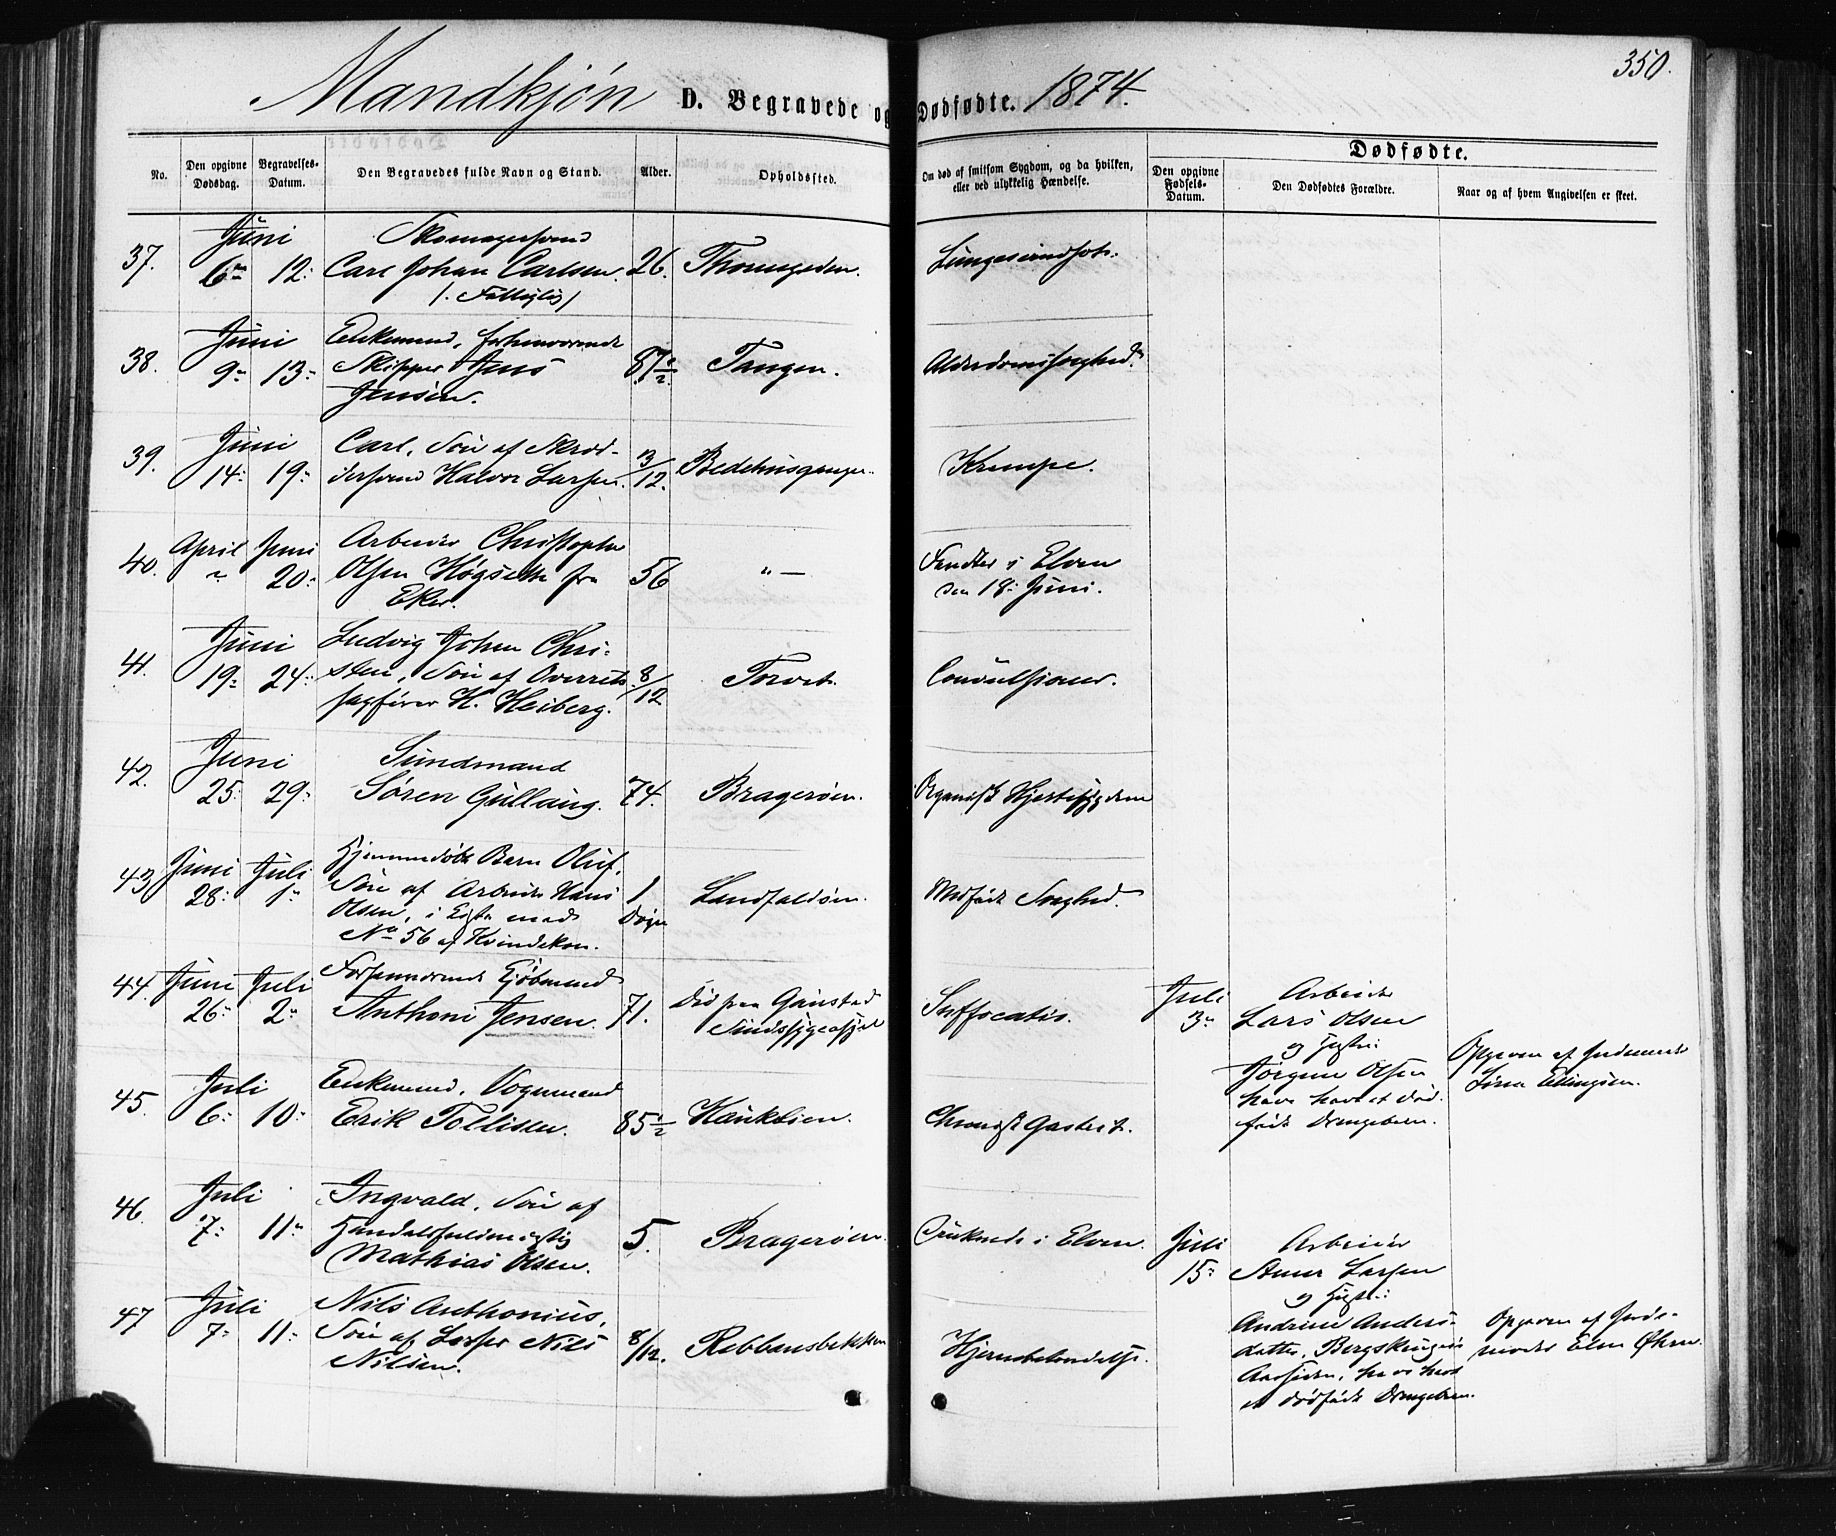 350.
Mandkjøn D. Begravede og Dødfødte. 1874.
No.
Den opgivne Dødsdag.
Begravelses-Datum.
Den Begravedes fulde Navn og Stand.
Alder.
Opholdssted.
Om død af smitsom Sygdom, og da hvilken, eller ved ulykkelig Hændelse.
Dødfødte.
Den opgivne Fødsels-Datum.
Den Dødfødtes Forældre.
Naar og af hvem Angivelsen er skeet.
37. Juni 6 12
Carl Johan Carlsen. 26.
38. Juni 9 13
Enkemand, forhenværende
Skipper Jens
Jensen. 87 1/2 Tangen. Alderdomssvaghed.
39. Juni 14 19
Carl, Søn af Skræd-
dersvend Halvor Larsen. 3/12. Krampe.
40. April Juni 20
Arbeider Christopher
Olsen fra
Eker. 56 " —
Fundet i Elven
den 18 Juni.
41. Juni 19 24
Ludvig Johan Chri-
sten, Søn af Overrets-
sagfører H. Heiberg. 8/12 Torvet. Convulsioner.
42. Juni 25 29
Sundmand
Søren Gullaug. 74. Bragerøen. Organisk Hjertesygdom
43. Juni 28 Juli 1
Hjemmedøbt Barn Oluf,
Søn af Arbeider Hans
Olsen, i med
No 56 af Kvindekøn. 1 Døgn Landfaldøen. Medfødt Svaghed.
44. Juni 26 Juli 2
Forhenværende Kjøbmand
Anthoni Jensen. 71.
Død paa Gaustad
Sindssygeasyl Suffocatio.
Juli 3
Arbeider
Lars Olsen
og Hustru
Jørgine Olsen
have havt et død-
født Drengebarn.
Opgiven af
45. Juli 6 10
Enkemand, Vognmand
Erik Tollisen. 85 1/2 Haukløen. Chronisk
46. Juli 7 11
Ingvald, Søn af
Handelsfuldmægtig
Mathias Olsen. 5. Bragerøen. Druknede i Elven.
Juli 15
Arbeider
Larsen
og Hustru
Andrine Anders-
datter,
have havt
et dødfødt Drengebarn.
Opgiven af Jorde-
moder
47 Juli 7 11
Nils Anthonius,
Søn af Nils
Nilsen. 8/12. Hjernebetændelse.